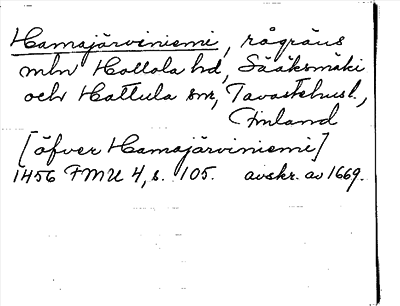 Hamajärviniemi, rågräns
mln Hollola hd, Sääksmäki
och Hattula snr, Tavastehusl.,
Finland
[öfver Hamajärviniemi]
1456 FMU 4, s. 105. avskr. av 1669.